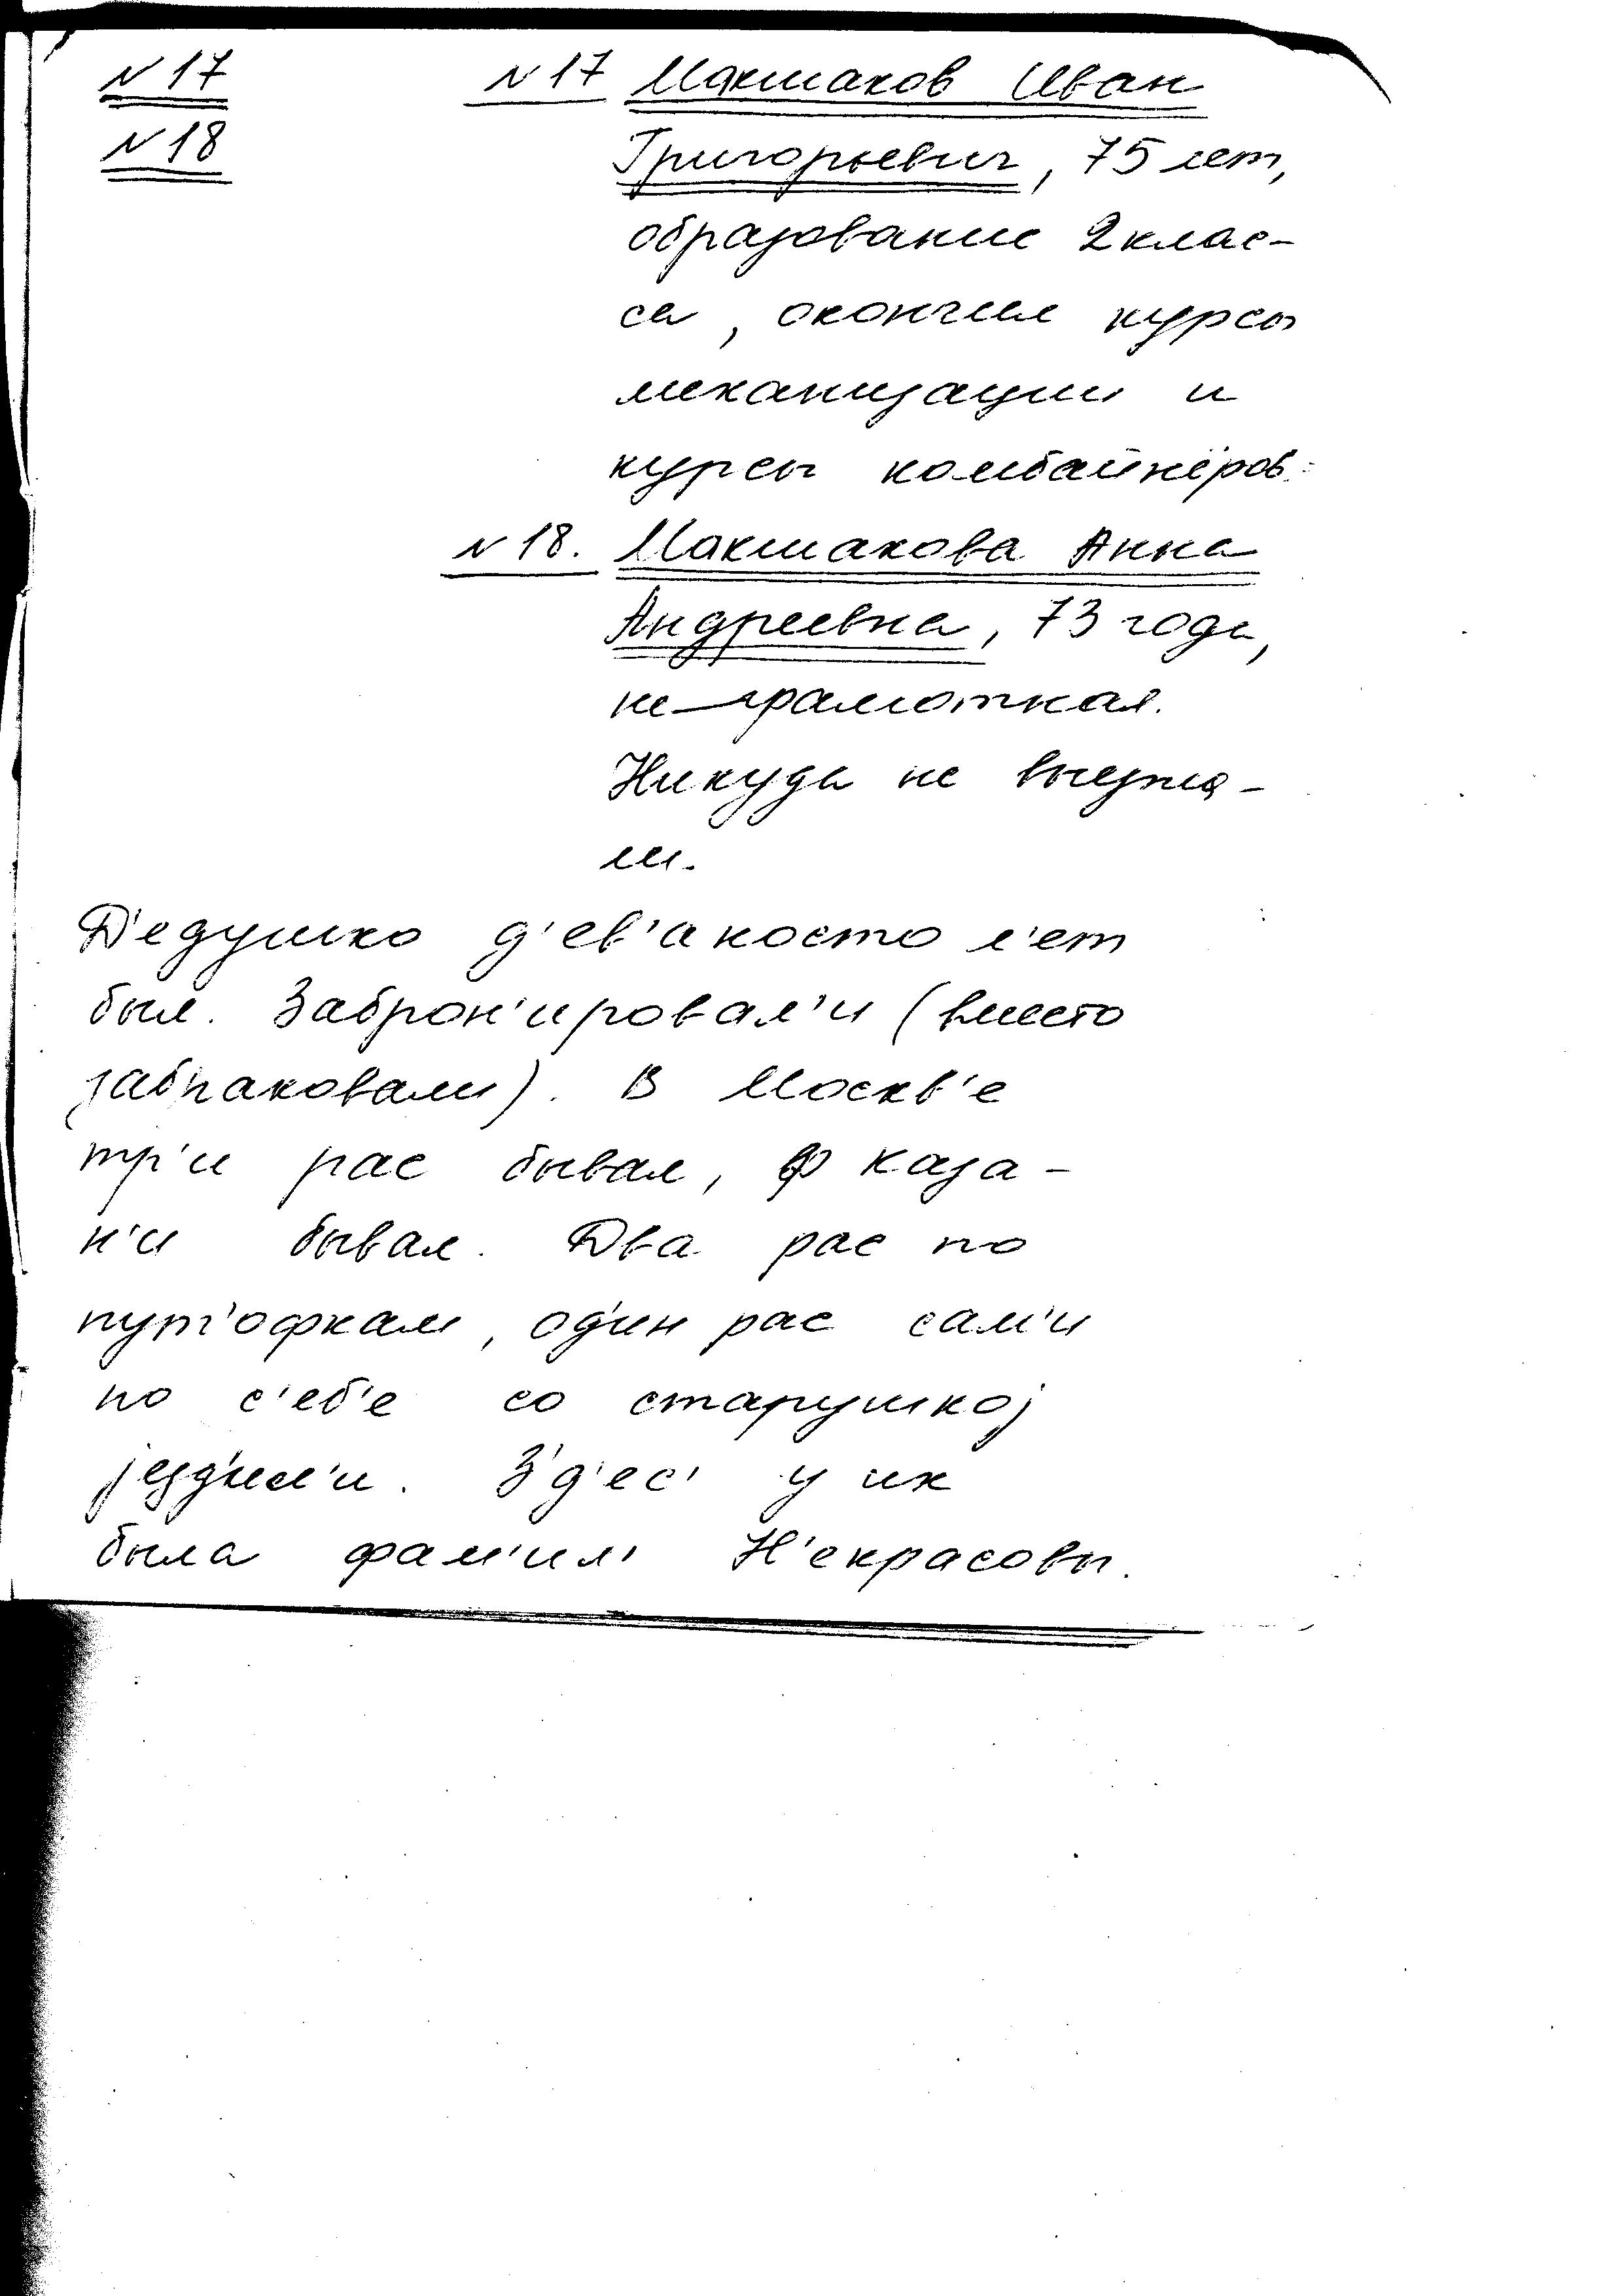 N 17
N 18
N 17 Макшаков Иван
Григорьевич, 75 лет,
образование 2 клас-
са, окончил курсы
механизации и
курсы комбайнёров.
N 18. Макшакова Анна
Андреевна, 73 года,
неграмотная.
Никуда не выезжа-
ли.
Д'едушко д'ев'аносто л'ет
был. Заброн'ировал'и (вместо
забраковали). В Москв'е
тр'и рас бывал, ф каза-
н'и бывал. Два рас по
пут'офкам, од'ин рас сам'и
по с'еб'е со старушкој
језд'ил'и. З'д'ес' у их
была фам'ил' Н'екрасовы.